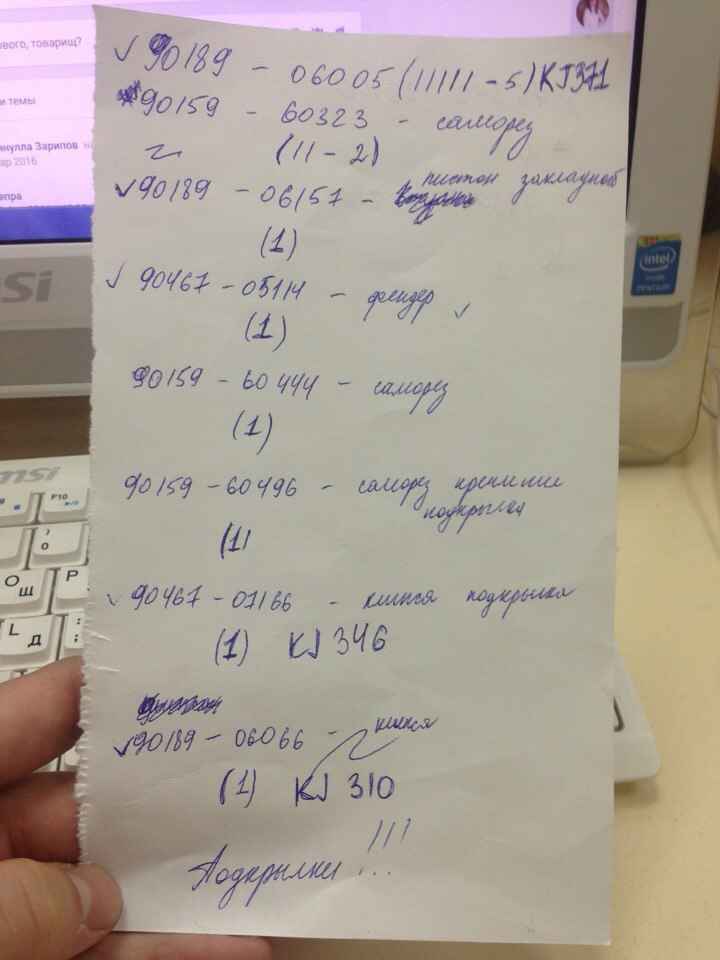 ового, товарищ?
и темы
инулла Зарипов на
ар 2016
епра
90189 - 06005 (11111 - 5) KJ371
90159 - 60323 - саморез
(11 - 2)
90189 - 06157 - пистон закладной
(1)
90467 - 05114 - фендер
(1)
90159 - 60444 - саморез
(1)
90159 - 60496 - саморез крепление
подкрылка
(1)
90467 - 07166 - клипса подкрылка
(1) KJ 346
90189 - 06066 - клипса
(1) KJ 310
Подкрылки !!!
msi
intel
inside
PENTIUM
msi
F9
F10
0
)
O
Щ
P
L
Д
:
;